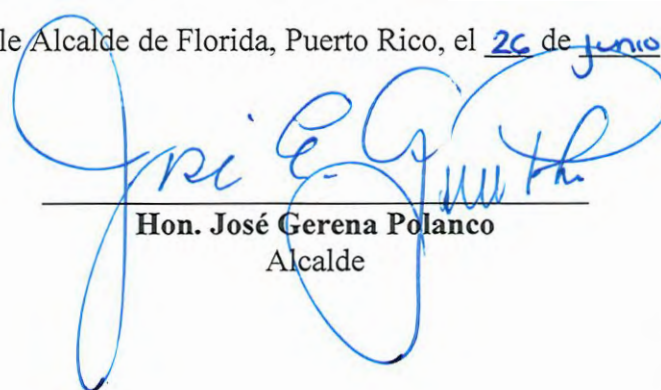 le Alcalde de Florida, Puerto Rico, el 26 de junio
José E. G
Hon. José Gerena Polanco
Alcalde